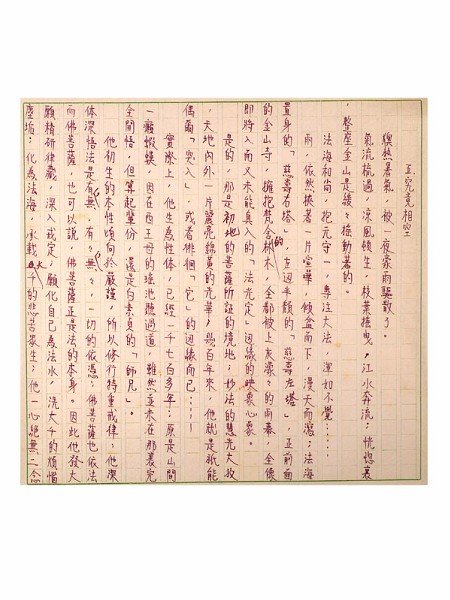 五究竟相空
燠熱暑氣,被一夜豪雨驅散了。
氣流梳過,涼風頓生,枝葉搖曳,江水奔流;恍惚裏
,整座金山是緩々搖動著的。
法海和尚,抱元守一,專注大法,渾如不覺……
雨,依然挾著一片喧嘩,傾盆而下,漫天而瀉;法海
置身的「慈壽右塔」,左迎手類的「慈壽左塔」,正前面
的金山寺,擁抱梵舍的林木,全都被上灰濛々的雨幕,全像
即將入而又未能真入的「法光定」迴緣的映象心象。
是的,那是初地的菩薩所証的境地;妙法的慧光大放
,天地內外一片瑩亮錦黃的光華;幾百年來,他就是祇能
偶爾「突入」,或者徘徊「它」的迴緣而已……!
實際上,他生為性体,已經一千七百多年;原是山間
一癩蝦蟆,因在西王母的瑤池聽過道,雖然並未在那裏完
全開悟,但算起輩份,還是白素貞的「師兄」。
他初生的本性傾向於嚴謹,所以修行特重戒律;他深
体深悟法是有無、有々無々,一切的依憑;佛菩薩也依法
而佛菩薩,也可以說,佛菩薩正是法的本身。因此他發大
願精研律藏,深入戒定,願化自己為法水,洗大千的煩惱
塵垢;化為法海,承載大千的悲苦眾生;他一心絕無二念